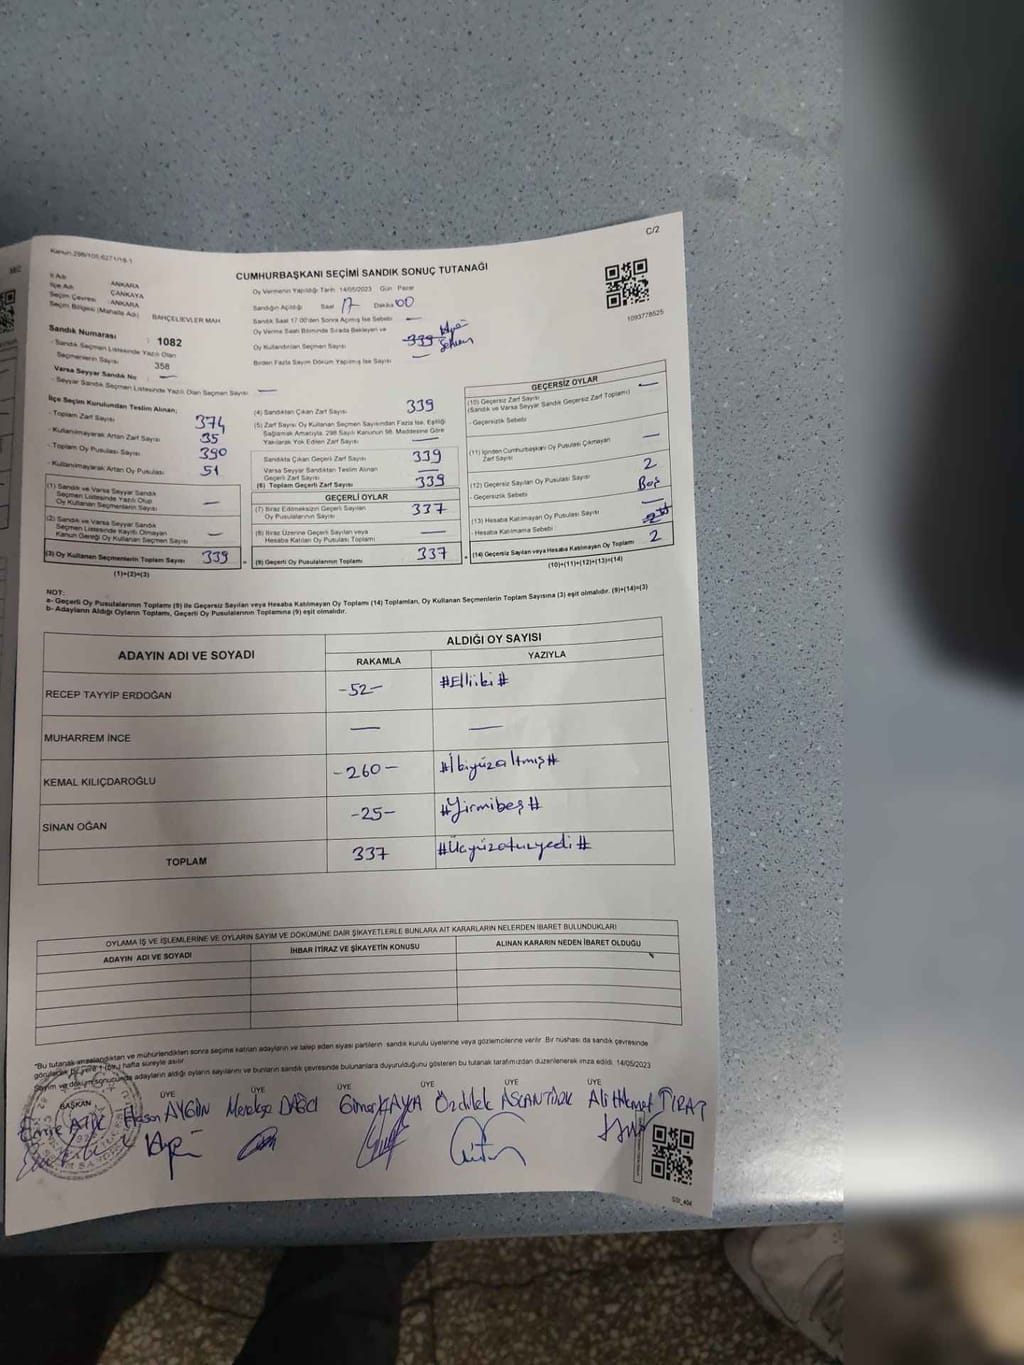 C/2
Kanun:298/105,6271/19-1
CUMHURBAŞKANI SEÇİMİ SANDIK SONUÇ TUTANAĞI
1093778525
İl Adı : ANKARA
İlçe Adı : ÇANKAYA
Seçim Çevresi : ANKARA
Seçim Bölgesi (Mahalle Adı) BAHÇELİEVLER MAH
Sandık Numarası : 1082
- Sandık Seçmen Listesinde Yazılı Olan
Seçmenlerin Sayısı 358
Varsa Seyyar Sandık No : —
- Seyyar Sandık Seçmen Listesinde Yazılı Olan Seçmen Sayısı —
Oy Vermenin Yapıldığı Tarih 14/05/2023 Gün Pazar
Sandığın Açıldığı Saat 17 Dakika 00
Sandık Saat 17:00'den Sonra Açılmış İse Sebebi —
Oy Verme Saati Bitiminde Sırada Bekleyen ve
Oy Kullandırılan Seçmen Sayısı 339
Birden Fazla Sayım Döküm Yapılmış İse Sayısı —
İlçe Seçim Kurulundan Teslim Alınan;
- Toplam Zarf Sayısı 374
- Kullanılmayarak Artan Zarf Sayısı 35
- Toplam Oy Pusulası Sayısı 390
- Kullanılmayarak Artan Oy Pusulası 51
(1) Sandık ve Varsa Seyyar Sandık
Seçmen Listesinde Yazılı Olup
Oy Kullanan Seçmenlerin Sayısı —
(2) Sandık ve Varsa Seyyar Sandık
Seçmen Listesinde Kayıtlı Olmayan
Kanun Gereği Oy Kullanan Seçmen Sayısı —
(3) Oy Kullanan Seçmenlerin Toplam Sayısı 339
(1)+(2)=(3)
(4) Sandıktan Çıkan Zarf Sayısı 339
(5) Zarf Sayısı Oy Kullanan Seçmen Sayısından Fazla İse, Eşitliği
Sağlamak Amacıyla, 298 Sayılı Kanunun 98. Maddesine Göre
Yakılarak Yok Edilen Zarf Sayısı —
Sandıkta Çıkan Geçerli Zarf Sayısı 339
Varsa Seyyar Sandıktan Teslim Alınan
Geçerli Zarf Sayısı —
(6) Toplam Geçerli Zarf Sayısı 339
GEÇERLİ OYLAR
(7) İtiraz Edilmeksizin Geçerli Sayılan
Oy Pusulalarının Sayısı 337
(8) İtiraz Üzerine Geçerli Sayılan veya
Hesaba Katılan Oy Pusulası Toplamı —
(9) Geçerli Oy Pusulalarının Toplamı 337
GEÇERSİZ OYLAR
(10) Geçersiz Zarf Sayısı —
(Sandık ve Varsa Seyyar Sandık Geçersiz Zarf Toplamı)
- Geçersizlik Sebebi
(11) İçinden Cumhurbaşkanı Oy Pusulası Çıkmayan
Zarf Sayısı —
(12) Geçersiz Sayılan Oy Pusulası Sayısı 2
- Geçersizlik Sebebi Boş
(13) Hesaba Katılmayan Oy Pusulası Sayısı —
- Hesaba Katılmama Sebebi :
(14) Geçersiz Sayılan veya Hesaba Katılmayan Oy Toplamı 2
(10)+(11)+(12)+(13)=(14)
NOT:
a- Geçerli Oy Pusulalarının Toplamı (9) ile Geçersiz Sayılan veya Hesaba Katılmayan Oy Toplamı (14) Toplamları, Oy Kullanan Seçmenlerin Toplam Sayısına (3) eşit olmalıdır. (9)+(14)=(3)
b- Adayların Aldığı Oyların Toplamı, Geçerli Oy Pusulalarının Toplamına (9) eşit olmalıdır.
ADAYIN ADI VE SOYADI ALDIĞI OY SAYISI
RAKAMLA YAZIYLA
RECEP TAYYİP ERDOĞAN -52- #Elliiki#
MUHARREM İNCE — —
KEMAL KILIÇDAROĞLU -260- #İkiyüzaltmış#
SİNAN OĞAN -25- #Yirmibeş#
TOPLAM 337 #Üçyüzotuzyedi#
OYLAMA İŞ VE İŞLEMLERİNE VE OYLARIN SAYIM VE DÖKÜMÜNE DAİR ŞİKAYETLERLE BUNLARA AİT KARARLARIN NELERDEN İBARET BULUNDUKLARI
ADAYIN ADI VE SOYADI İHBAR İTİRAZ VE ŞİKAYETİN KONUSU ALINAN KARARIN NEDEN İBARET OLDUĞU
"Bu tutanak imzalandıktan ve mühürlendikten sonra seçime katılan adayların ve talep eden siyasi partilerin sandık kurulu üyelerine veya gözlemcilerine verilir. Bir nüshası da sandık çevresinde
görülecek bir yere 1 (bir) hafta süreyle asılır.
Sayım ve döküm sonucunda adayların aldığı oyların sayılarını ve bunların sandık çevresinde bulunanlara duyurulduğunu gösteren bu tutanak tarafımızdan düzenlenerek imza edildi. 14/05/2023
BAŞKAN ÜYE ÜYE ÜYE ÜYE ÜYE ÜYE
Hasan AYGÜN Özdilek ASLANTÜRK